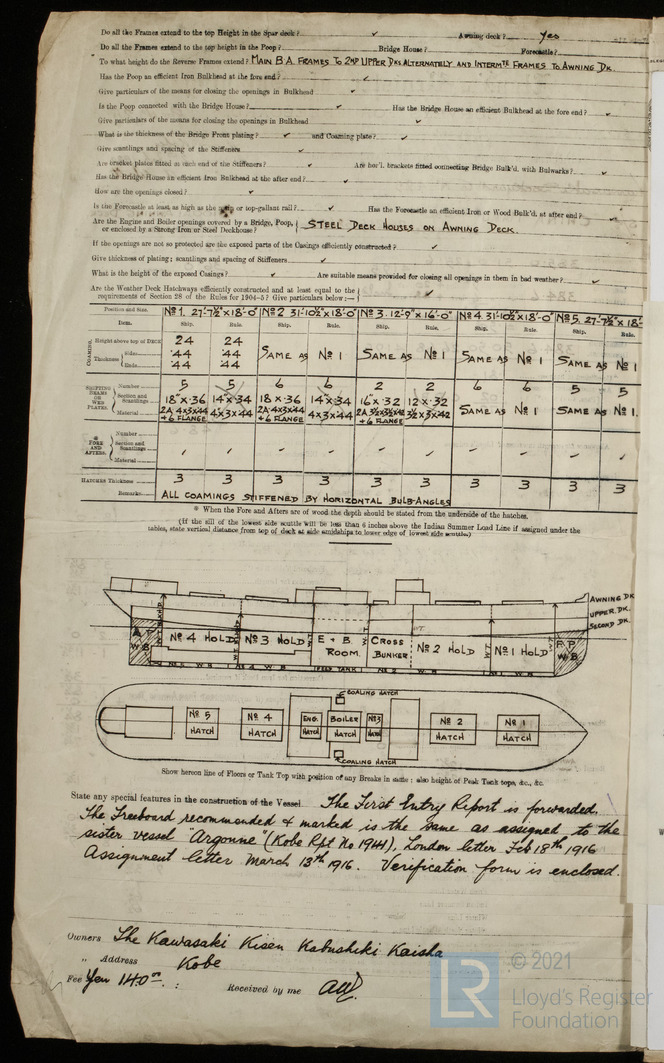 Do all the Frames extend to the top Height in the Spar deck? ✓ Awning deck? Yes
Do all the Frames extend to the top height in the Poop? Bridge House? Forecastle?
To what height do the Reverse Frames extend? MAIN B.A. FRAMES TO 2ND UPPER DKS ALTERNATELY AND INTERMTE FRAMES TO AWNING DK.
Has the Poop an efficient Iron Bulkhead at the fore end? ✓
Give particulars of the means for closing the openings in Bulkhead ✓
Is the Poop connected with the Bridge House? ✓ Has the Bridge House an efficient Bulkhead at the fore end? ✓
Give particulars of the means for closing the openings in Bulkhead ✓
What is the thickness of the Bridge Front plating? ✓ and Coaming plate? ✓
Give scantlings and spacing of the Stiffeners ✓
Are bracket plates fitted at each end of the Stiffeners? ✓ Are hor'l. brackets fitted connecting Bridge Bulk'd. with Bulwarks? ✓
Has the Bridge House an efficient Iron Bulkhead at the after end? ✓
How are the openings closed? ✓
Is the Forecastle at least as high as the main or top-gallant rail? ✓ Has the Forecastle an efficient Iron or Wood Bulk'd. at after end? ✓
Are the Engine and Boiler openings covered by a Bridge, Poop,
or enclosed by a Strong Iron or Steel Deckhouse? STEEL DECK HOUSES ON AWNING DECK.
If the openings are not so protected are the exposed parts of the Casings efficiently constructed? ✓
Give thickness of plating; scantlings and spacing of Stiffeners ✓
What is the height of the exposed Casings? ✓ Are suitable means provided for closing all openings in them in bad weather? ✓
Are the Weather Deck Hatchways efficiently constructed and at least equal to the
requirements of Section 28 of the Rules for 1904-5? Give particulars below:— ✓
Position and Size. No 1. 27'-7½" x 18'-0" No 2 31'-10½" x 18'-0" No 3. 12'-9" x 16'-0" No 4. 31'-10½" x 18'-0" No 5. 27'-7½" x 18'-
Item. Ship. Rule. Ship. Rule. Ship. Rule. Ship. Rule. Ship. Rule.
COAMING Height above top of DECK 24 24
Thickness Sides .44 .44 SAME AS No 1 SAME AS No 1 SAME AS No 1 SAME AS No 1
Ends .44 .44
SHIFTING BEAMS OR WEB PLATES. Number 5 5 6 6 2 2 6 6 5 5
Section and Scantlings 18" x .36 14" x .34 18 x .36 14 x .34 16 x .32 12 x .32
Material 2A 4x3x44 4x3x44 2A 4x3x44 4x3x44 SAME AS No 1 SAME AS No 1.
+ 6 FLANGE + 6 FLANGE + 6 FLANGE
* FORE AND AFTERS. Number
Section and Scantlings
Material
HATCHES Thickness 3 3 3 3 3 3 3 3 3 3
Remarks ALL COAMINGS STIFFENED BY HORIZONTAL BULB-ANGLES
* When the Fore and Afters are of wood the depth should be stated from the underside of the hatches.
(If the sill of the lowest side scuttle will be less than 6 inches above the Indian Summer Load Line if assigned under the
tables, state vertical distance from top of deck at side amidships to lower edge of lowest side scuttle.)
AWNING DK
UPPER DK.
SECOND DK.
No 4 HOLD No 3 HOLD E + B ROOM. CROSS BUNKER No 2 HOLD No 1 HOLD
W.B. W.B. FEED TANK W.B. W.B.
COALING HATCH
No 5 HATCH No 4 HATCH ENG. HATCH BOILER HATCH No 3 HATCH No 2 HATCH No 1 HATCH
COALING HATCH
Show hereon line of Floors or Tank Top with position of any Breaks in same: also height of Peak Tank tops, &c., &c.
State any special features in the construction of the Vessel. The First Entry Report is forwarded.
The Freeboard recommended & marked is the same as assigned to the
sister vessel "Argonne" (Kobe Rpt No 1941), London letter Feb 18th 1916
Assignment letter March 13th 1916. Verification form is enclosed.
Owners The Kawasaki Kisen Kabushiki Kaisha
" Address Kobe
Fee Yen 140.00 : Received by me
LR © 2021
Lloyd's Register
Foundation